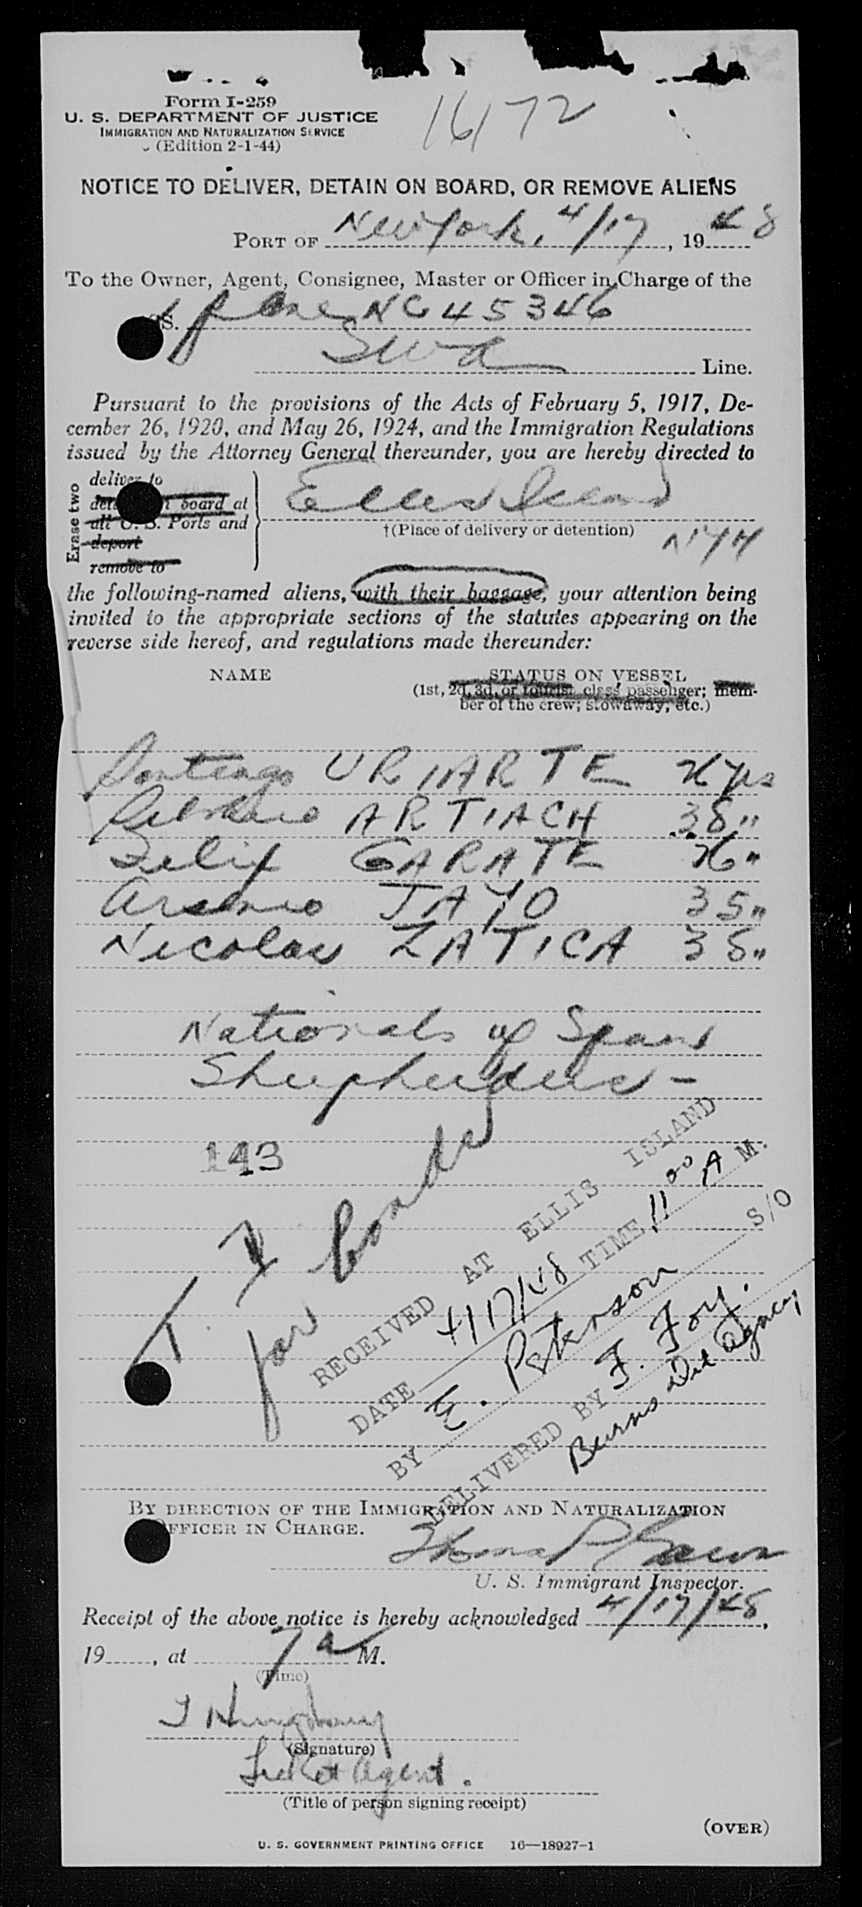 Form I-259
U. S. DEPARTMENT OF JUSTICE
IMMIGRATION AND NATURALIZATION SERVICE
(Edition 2-1-44)
16/72
NOTICE TO DELIVER, DETAIN ON BOARD, OR REMOVE ALIENS
PORT OF New York, 4/17, 1948
To the Owner, Agent, Consignee, Master or Officer in Charge of the
SS. plane NC 45346
SWA Line.
Pursuant to the provisions of the Acts of February 5, 1917, De-
cember 26, 1920, and May 26, 1924, and the Immigration Regulations
issued by the Attorney General thereunder, you are hereby directed to
Erase two
deliver to
board at
all U. S. Ports and
deport
remove to
Ellis Island
†(Place of delivery or detention)
NYH
the following-named aliens, with their baggage, your attention being
invited to the appropriate sections of the statutes appearing on the
reverse side hereof, and regulations made thereunder:
NAME
STATUS ON VESSEL
(1st, 2d, 3d, or tourist class passenger; mem-
ber of the crew; stowaway, etc.)
Santiago URIARTE yrs
ARTIACH 38 "
Felix GARATE "
Arsenio JAYO 35 "
Nicolas LATICA 38 "
Nationals of Spain
Shepherders -
143
T. D
for bonds
RECEIVED AT ELLIS ISLAND
DATE 4/17/48 TIME 11 00 A M.
BY E. Peterson S/O
DELIVERED BY F. Foy.
Burns Det Agency
BY DIRECTION OF THE IMMIGRATION AND NATURALIZATION
OFFICER IN CHARGE.
Thomas P
U. S. Immigrant Inspector.
Receipt of the above notice is hereby acknowledged 4/17/48,
19......, at 7 a M.
(Time)
(Signature)
Ticket Agent.
(Title of person signing receipt)
(OVER)
U. S. GOVERNMENT PRINTING OFFICE 16—18927-1